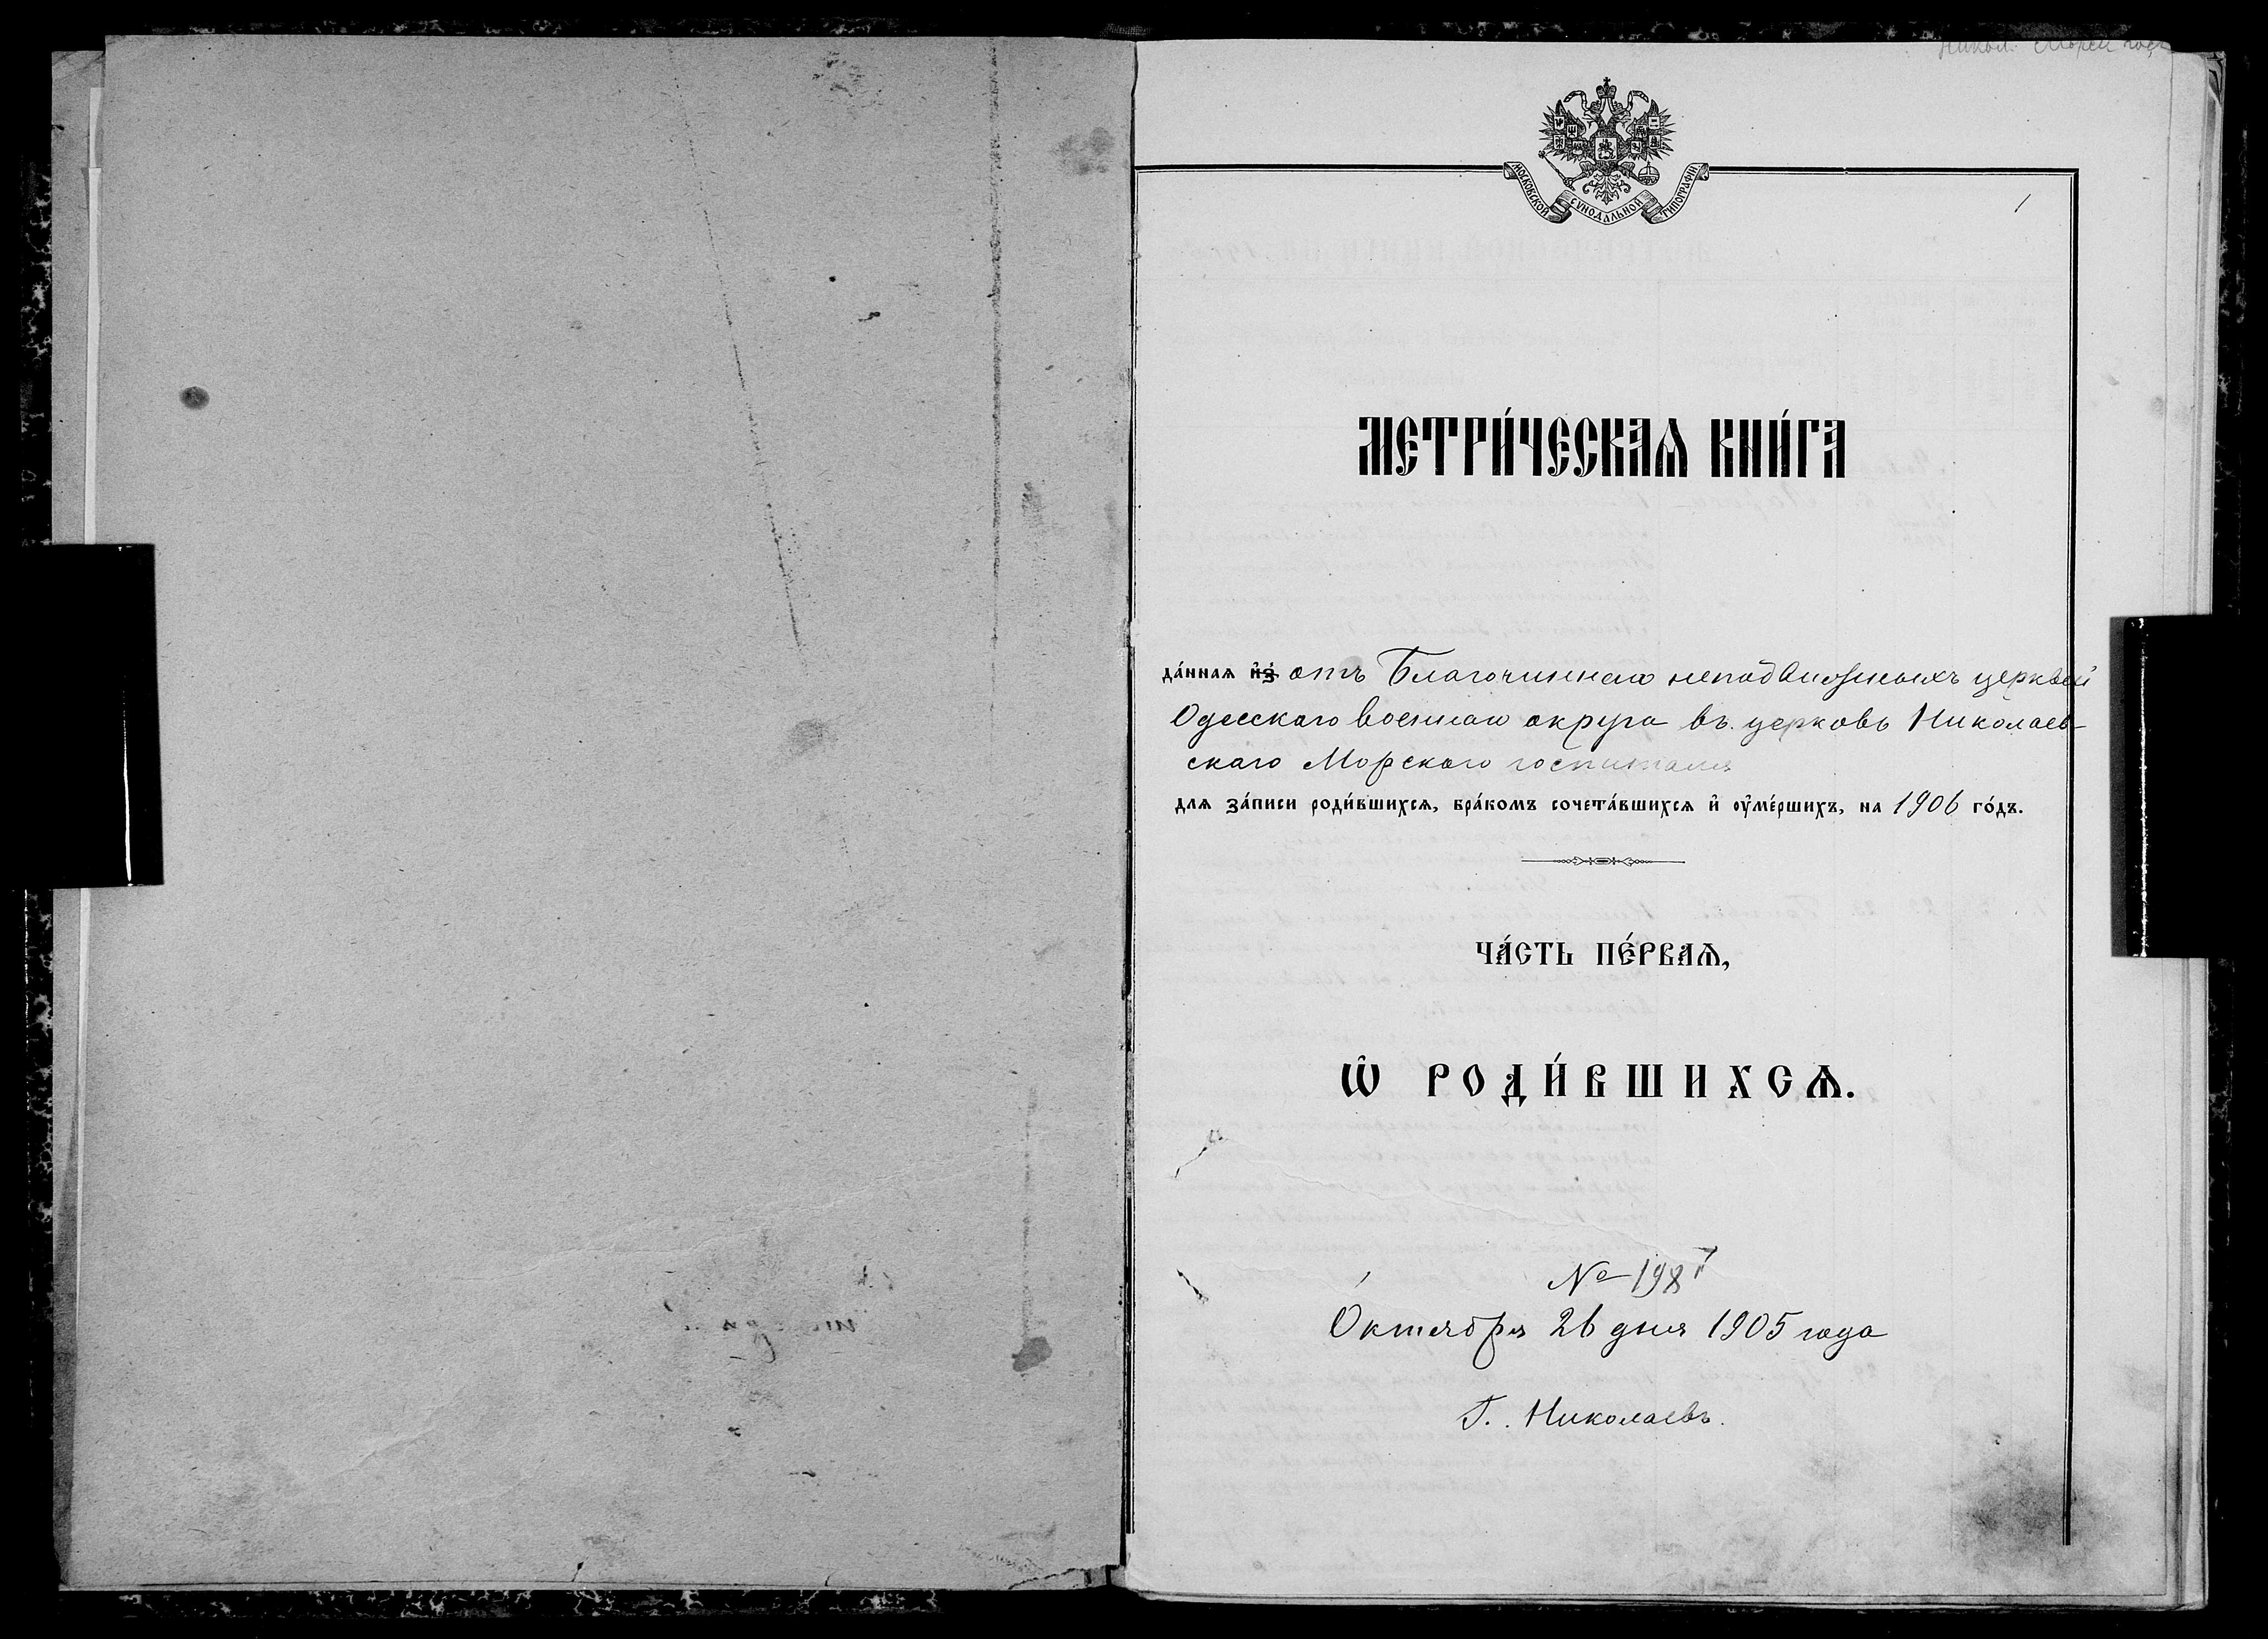 Никол. Морск. госп.
МОСКОВСКОЙ СѴНОДАЛЬНОЙ ТИПОГРАФІИ
1
МЕТРИ́ЧЕСКАѦ КНИ́ГА
да́ннаѧ и҆з̾ отъ Благочиннаго неподвижныхъ церквей
Одесскаго военнаго округа въ церковь Николаев-
скаго Морского госпиталя
длѧ за́писи роди́вшихсѧ, бра́комъ сочета́вшихсѧ и҆ оу҆ме́ршихъ, на 1906 го́дъ.
ЧА́СТЬ ПЕ́РВАѦ,
Ѽ РОДИ́ВШИХСѦ.
№ 198
Октября 26 дня 1905 года
Г. Николаевъ.